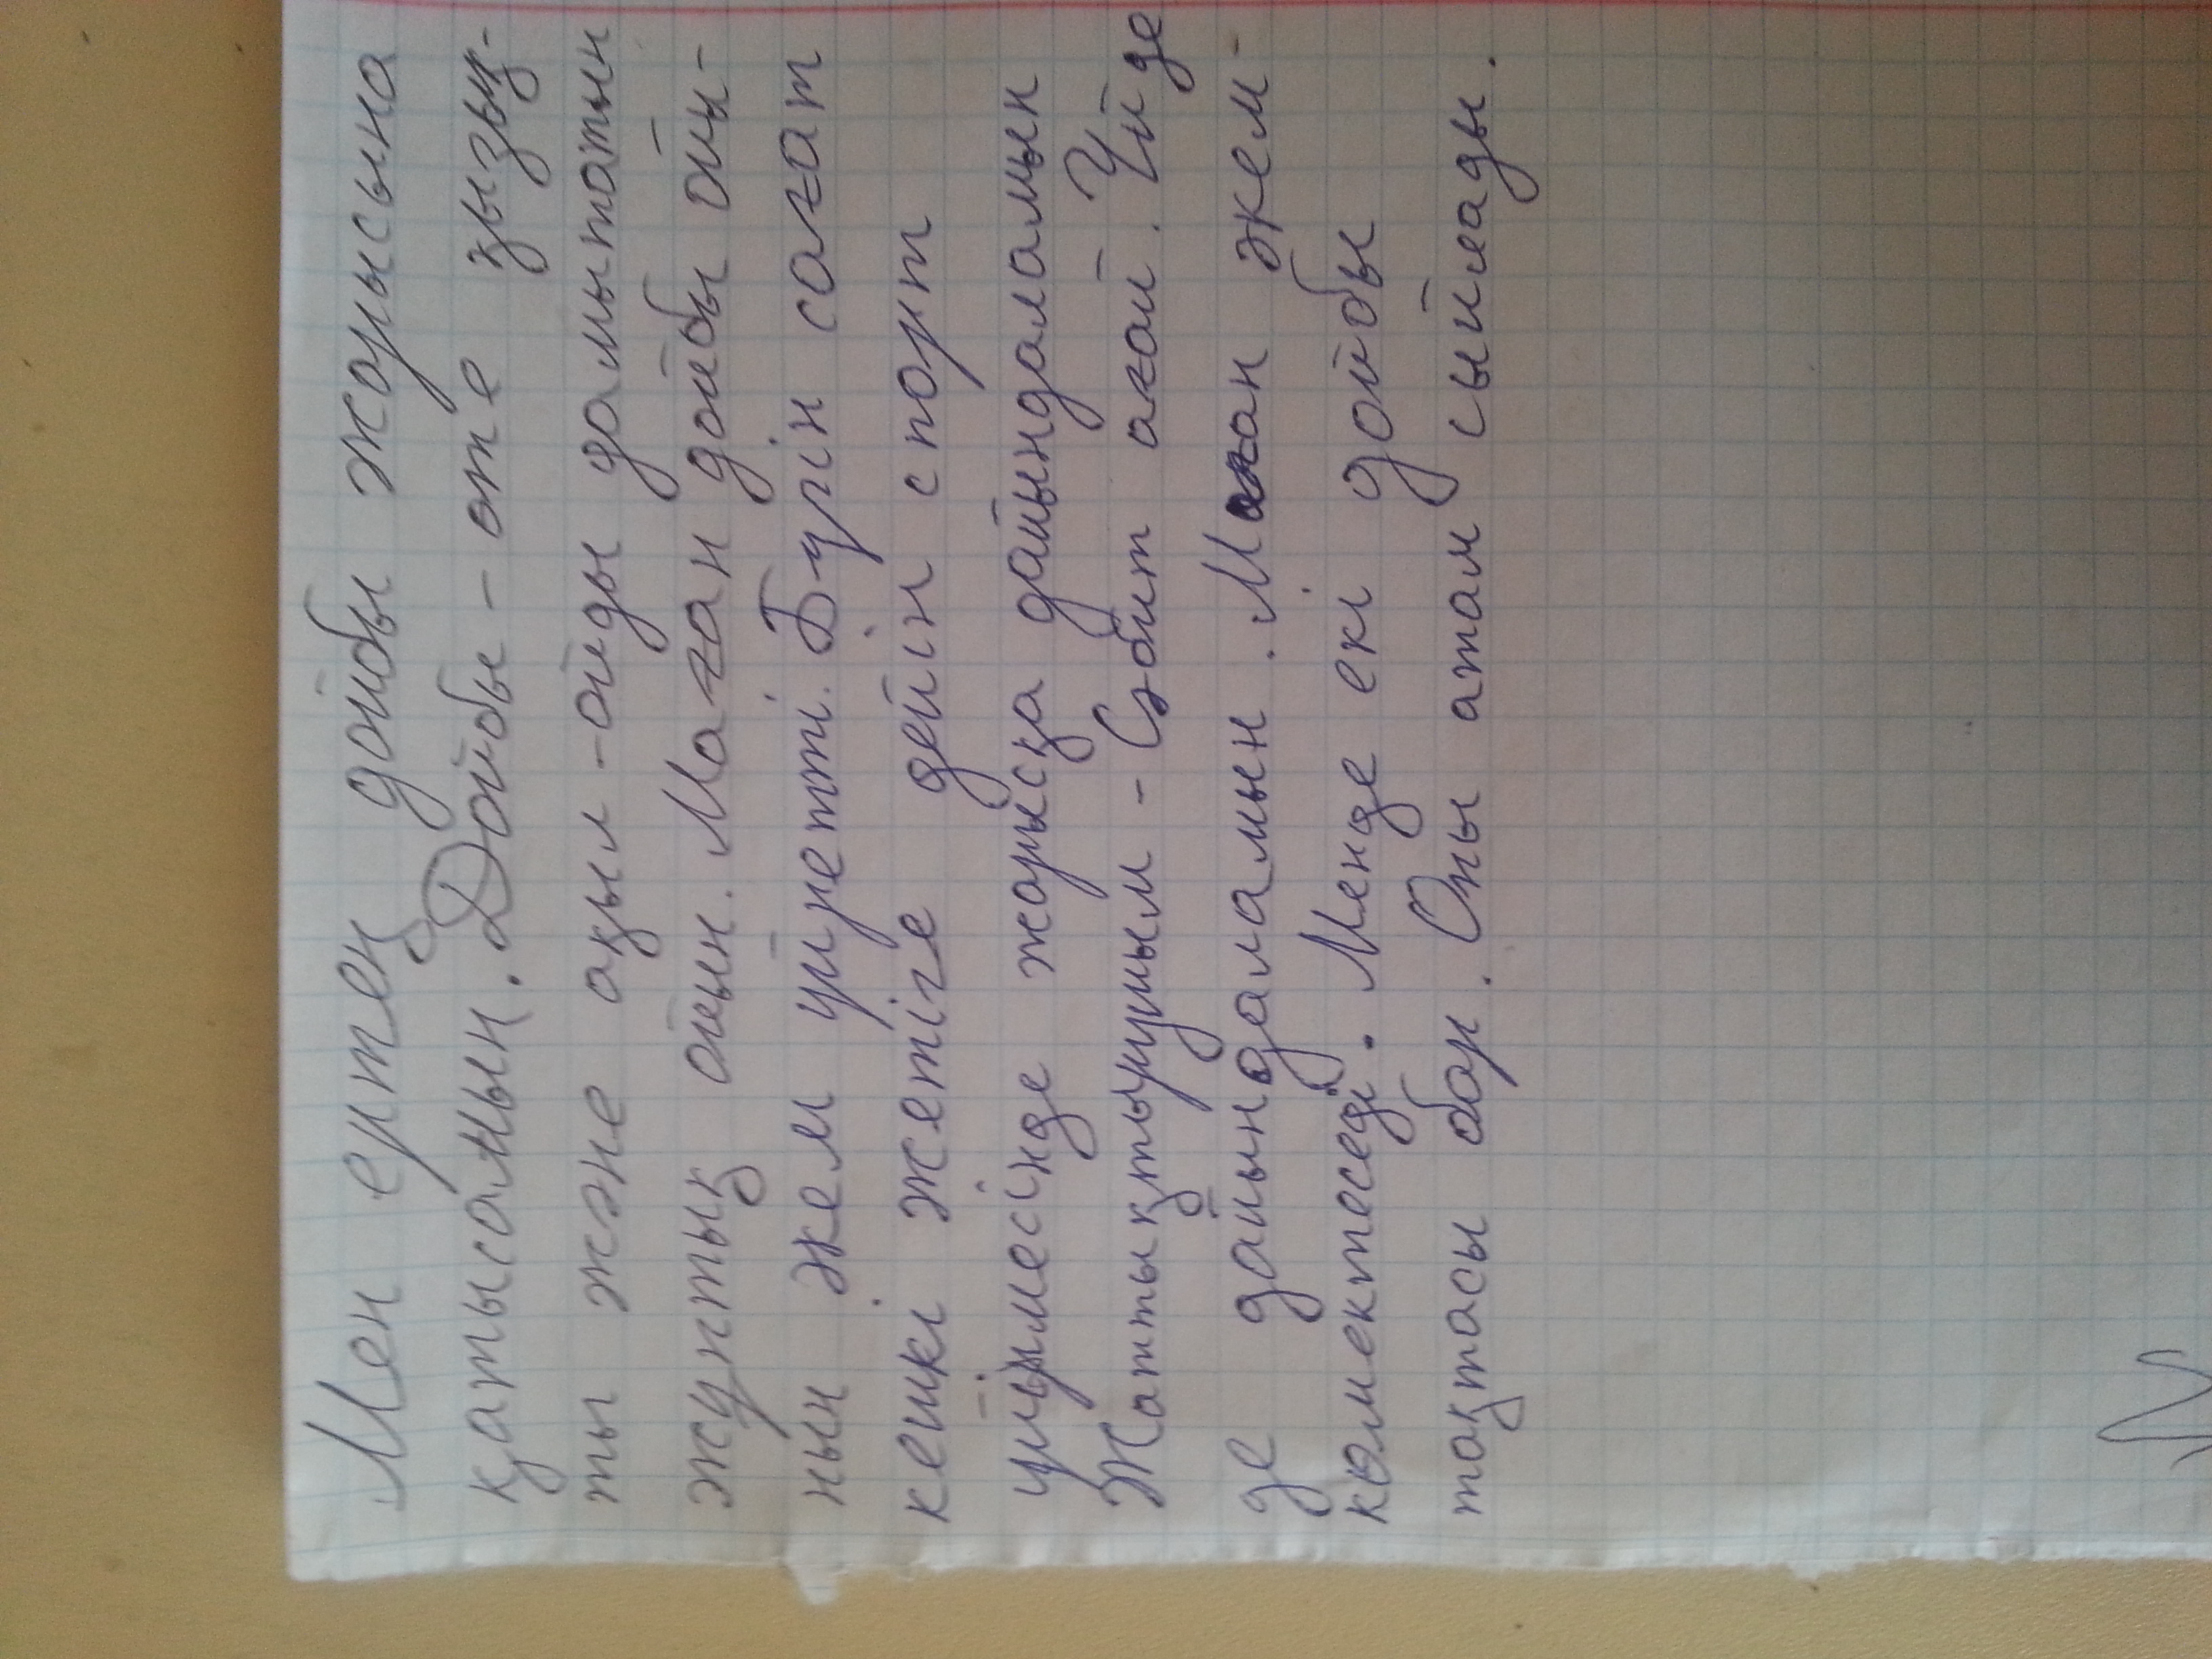 Мен ертең дойбы жарысына
қатысамын. Дойбы - өте қызық-
ты және ақыл-ойды дамытатын
жұптық ойын. Маған дойбы ойы-
нын әкем үйретті. Бүгін сағат
кешкі жетіге дейін спорт
үйірмесінде жарысқа дайындаламын
Жаттықтырушым - Сәбит ағай. Үйде
де дайындаламын. Маған әкем
көмектеседі. Менде екі дойбы
тақтасы бар. Оны атам сыйлады.